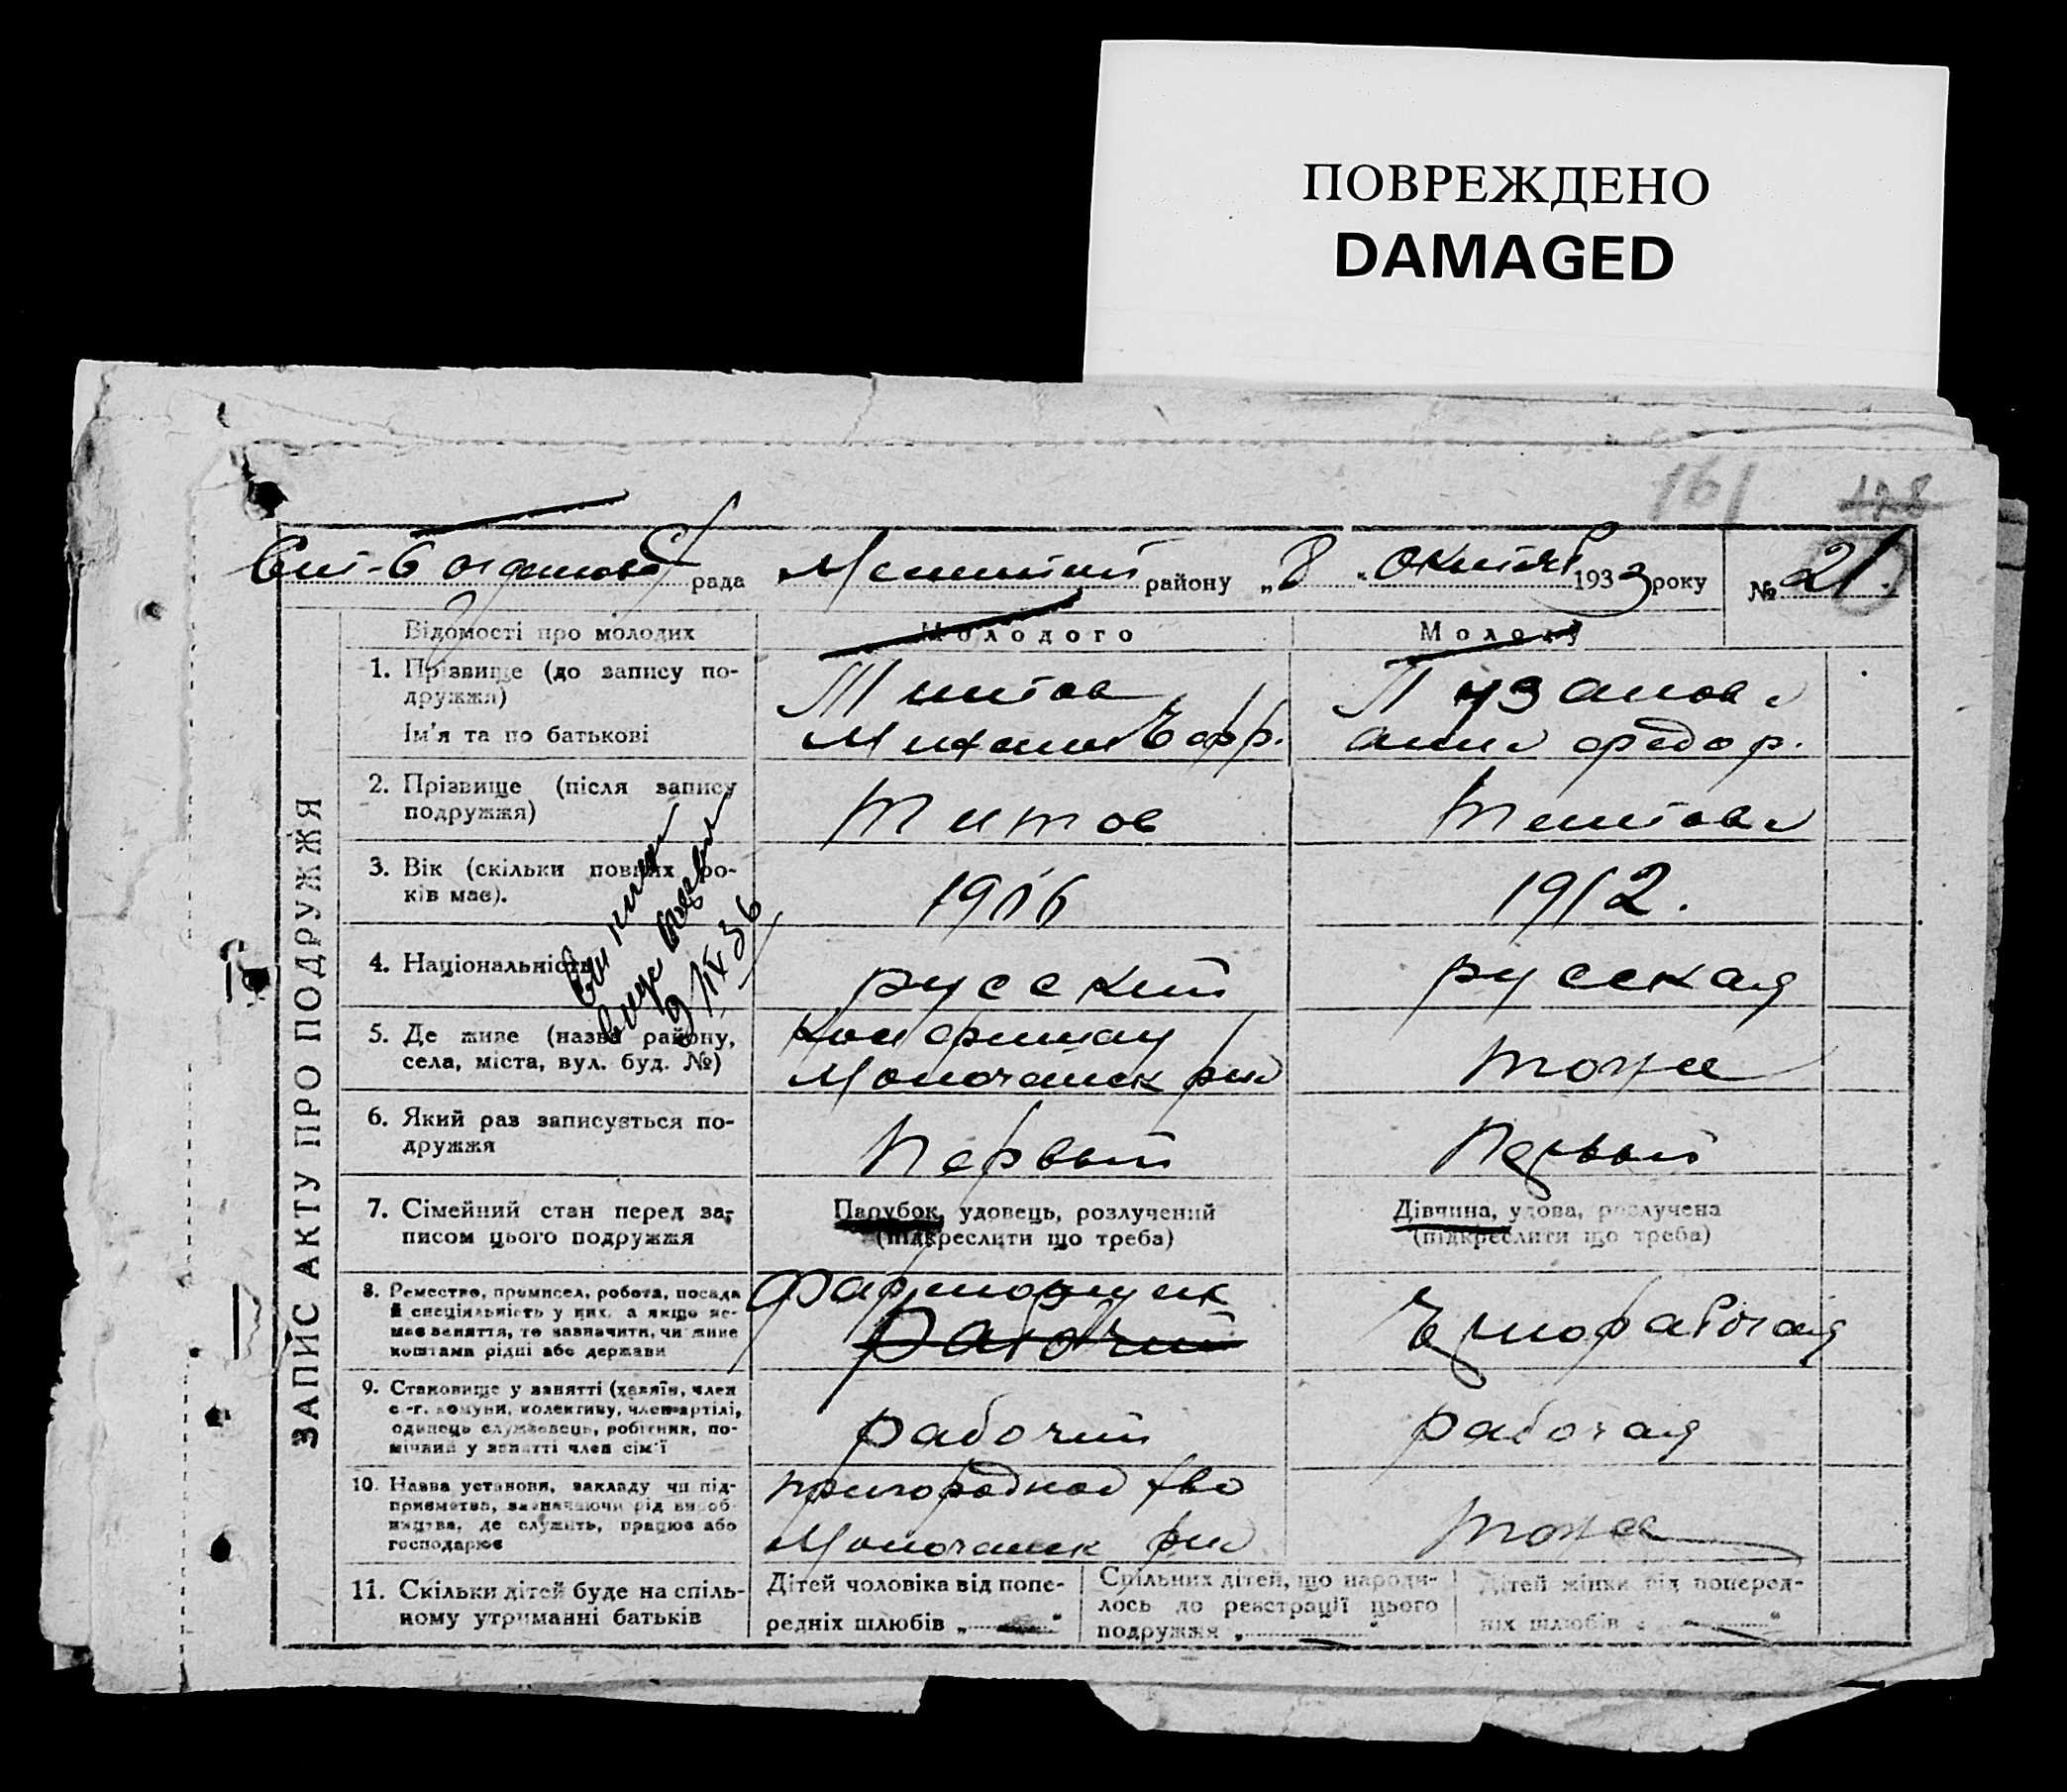 ПОВРЕЖДЕНО
DAMAGED
161
рада району „8 " октября 1933 року № 21.
ЗАПИС АКТУ ПРО ПОДРУЖЖЯ
Відомості про молодих
Молодого
Молоду
1. Прізвище (до запису по-
дружжя)
Ім'я та по батькові
Титов
Михаил Ефр.
Пузанова
Анна Федор.
2. Прізвище (після запису
подружжя)
Титов
Титова
3. Вік (скільки повних ро-
ків має).
1906
1912.
4. Національність
русский
русская
5. Де живе (назва району,
села, міста, вул. буд. №)
Молочанск рна
тоже
6. Який раз записується по-
дружжя
Первый
Первый
7. Сімейний стан перед за-
писом цього подружжя
Парубок, удовець, розлучений
(підкреслити що треба)
Дівчина, удова, розлучена
(підкреслити що треба)
8. Ремество, промисел, робота, посада
й спеціяльність у них, а якщо не-
має заняття, то зазначити, чи живе
коштами рідні або держави
Рабочий
Чернорабочая
9. Становище у занятті (хазяїн, член
с.-г. комуни, колективу, член артілі,
одинець службовець, робітник, по-
мічний у занятті член сім'ї
рабочий
рабочая
10. Назва установи, закладу чи під-
приємства, зазначаючи рід вироб-
ництва, де служить, працює або
господарює
пригородное х-во
Молочанск рна
тоже
11. Скільки дітей буде на спіль-
ному утриманні батьків
Дітей чоловіка від попе-
редніх шлюбів „ "
Спільних дітей, що народи-
лось до реєстрації цього
подружжя „ "
Дітей жінки від поперед-
ніх шлюбів „ "